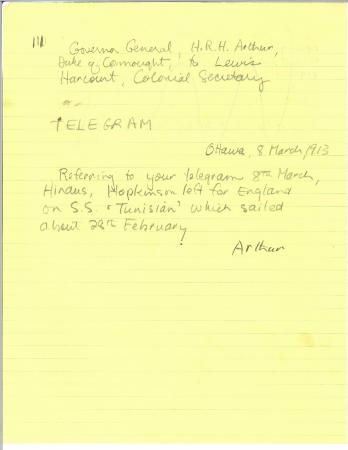 Governor General, H.R.H. Arthur,
Duke of Connaught, to Lewis
Harcourt, Colonial Secretary
TELEGRAM
Ottawa, 8 March 1913
Referring to your telegram 8th March,
Hindus, Hopkinson left for England
on S.S. "Tunisian" which sailed
about 28th February
Arthur